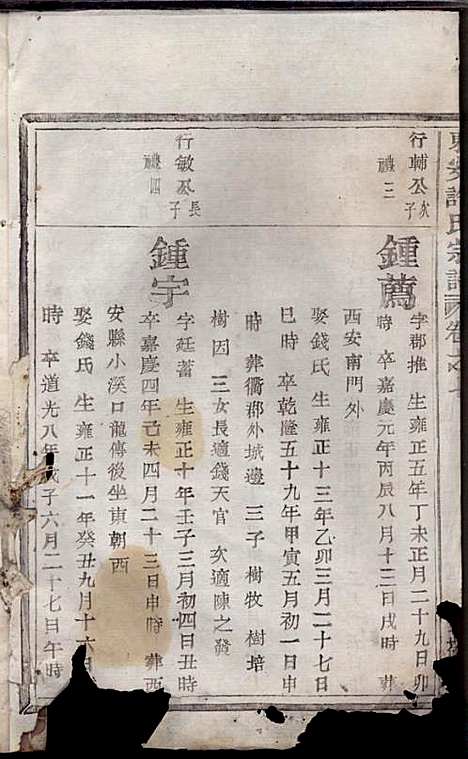 行輔公次子
禮三
鍾萬
字郡推 生雍正五年丁未正月二十九日卯
時 卒嘉慶元年丙辰八月十三日戌時 葬
西安南門外
娶錢氏 生雍正十三年乙卯三月二十七日
巳時 卒乾隆五十九年甲寅五月初一日申
時 葬衢郡外城邊 三子 樹牧 樹培
樹因 三女長適錢天官 次適陳之發
行敏公長子
禮四
鍾宇
字廷蓄 生雍正十年壬子三月初四日丑時
卒嘉慶四年己未四月二十三日申時 葬西
安縣小溪口龍傳後坐東朝西
娶錢氏 生雍正十一年癸丑九月十六
時 卒道光八年戊子六月二十七日午時